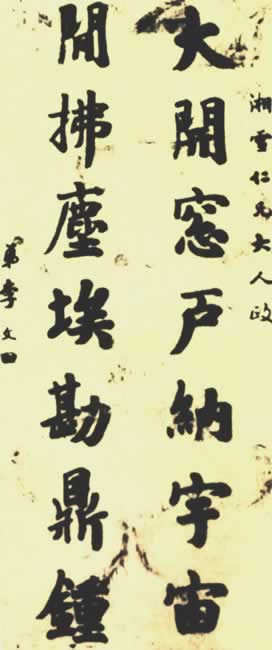 湘雪仁兄大人政
大開窓戶納宇宙
閒拂塵埃勘鼎鍾
弟李文田